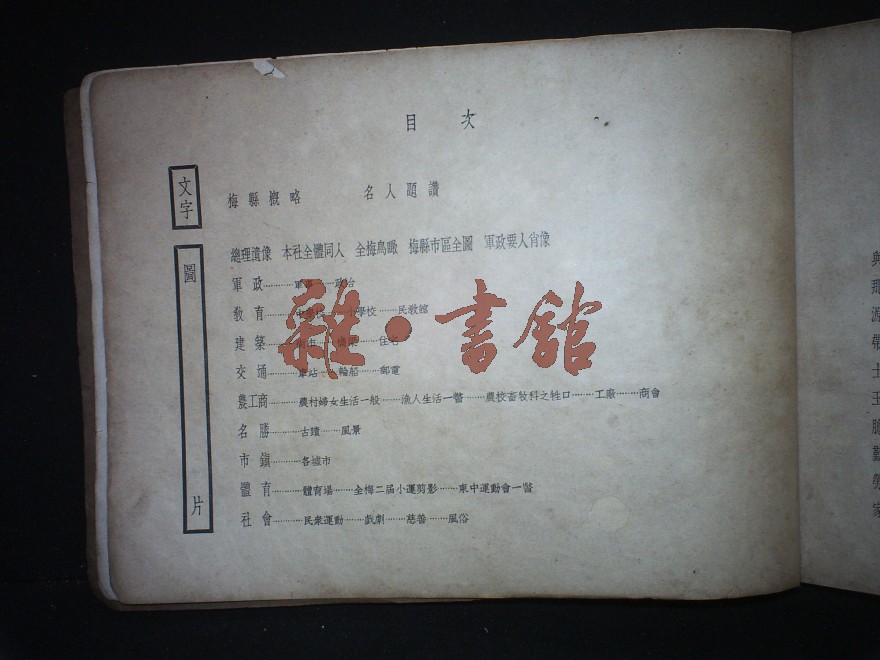 目 次
文字
梅縣概略 名人題讚
圖片
總理遺像 本社全體同人 全梅鳥瞰 梅縣市區全圖 軍政要人肖像
軍政…………軍事……政治
教育…………中學校……小學校……民教館
建築…………街市……橋梁……住宅
交通…………車站……輪船……郵電
農工商…………農村婦女生活一般……漁人生活一瞥……農校畜牧科之牲口……工廠……商會
名勝…………古蹟……風景
市鎮…………各墟市
體育…………體育場……全梅二屆小運剪影……東中運動會一瞥
社會…………民衆運動……戲劇……慈善……風俗
雜·書舘